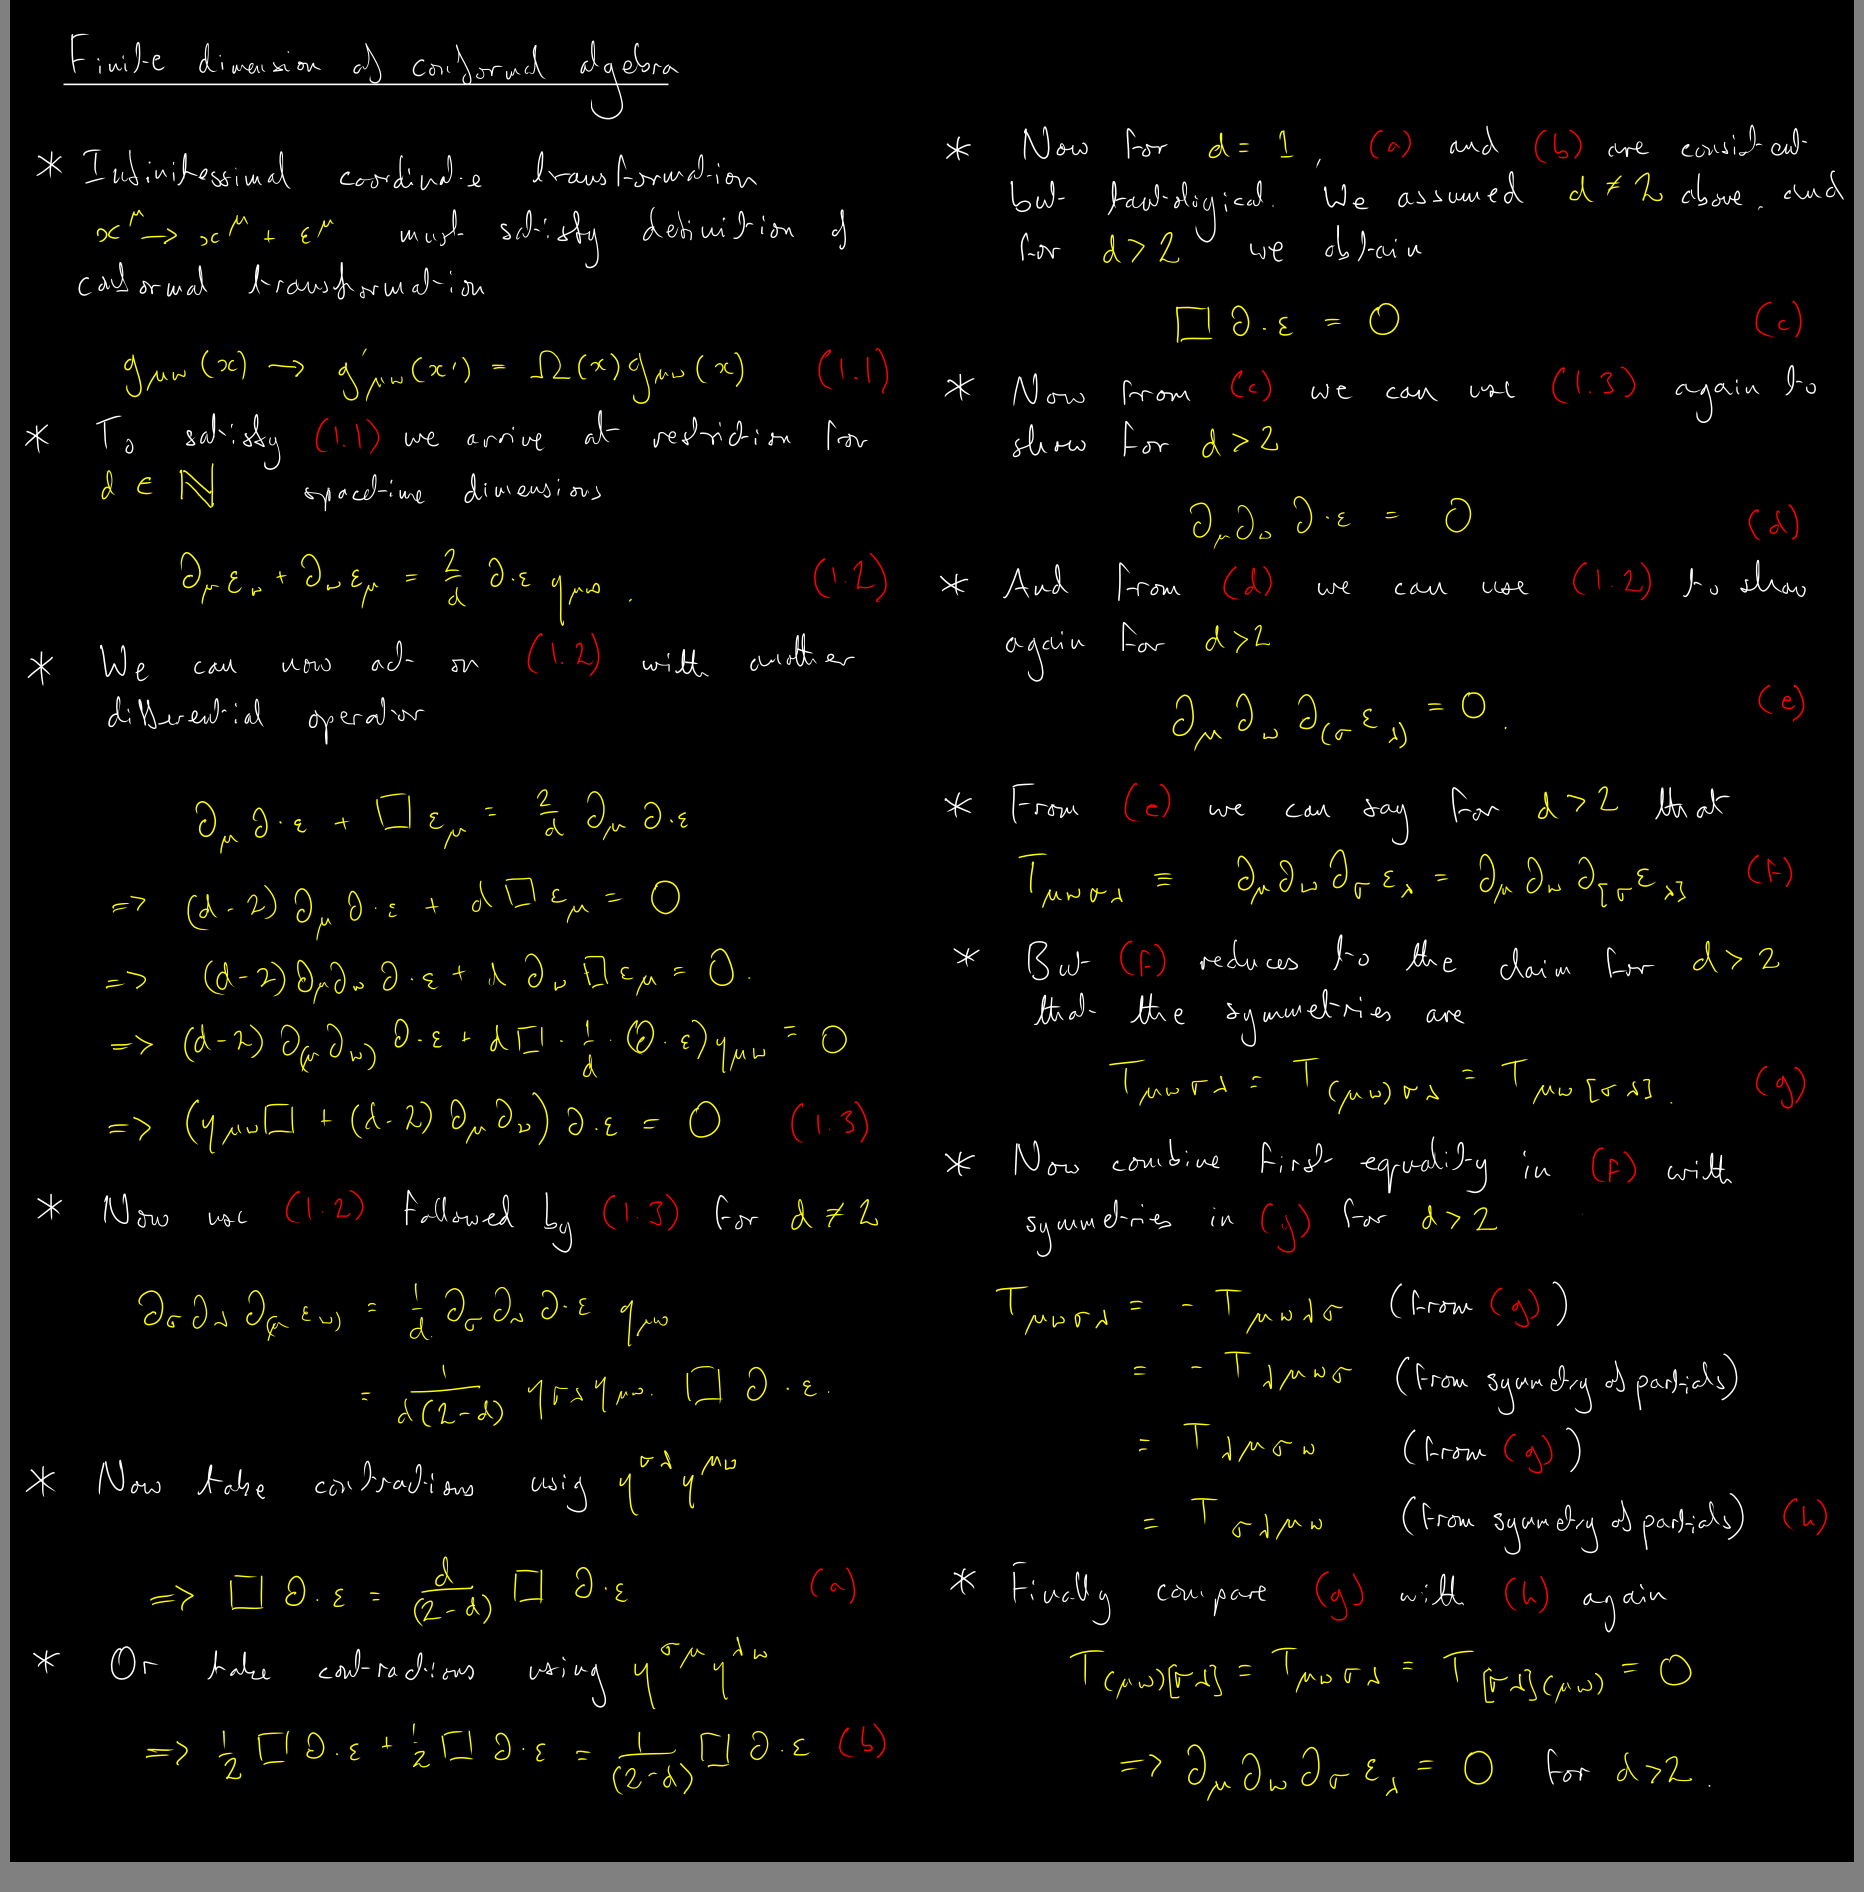 Finite dimension of conformal algebra
* Infinitessimal coordinate transformation
x^μ → x^μ + ε^μ must satisfy definition of
conformal transformation
g_{μν}(x) → g'_{μν}(x') = Ω(x) g_{μν}(x) (1.1)
* To satisfy (1.1) we arrive at restriction for
d ∈ ℕ spacetime dimensions
∂_μ ε_ν + ∂_ν ε_μ = 2/d ∂·ε η_{μν}. (1.2)
* We can now act on (1.2) with another
differential operator
∂_μ ∂·ε + □ ε_μ = 2/d ∂_μ ∂·ε
=> (d-2) ∂_μ ∂·ε + d □ ε_μ = 0
=> (d-2) ∂_μ ∂_ν ∂·ε + d ∂_ν □ ε_μ = 0.
=> (d-2) ∂_{(μ} ∂_{ν)} ∂·ε + d □ · 1/d · (∂·ε) η_{μν} = 0
=> (η_{μν} □ + (d-2) ∂_μ ∂_ν) ∂·ε = 0 (1.3)
* Now use (1.2) followed by (1.3) for d ≠ 2
∂_σ ∂_λ ∂_{(μ} ε_{ν)} = 1/d ∂_σ ∂_λ ∂·ε η_{μν}
= 1/(d(2-d)) η_{σλ} η_{μν} □ ∂·ε.
* Now take contractions usig η^{σλ} η^{μν}
=> □ ∂·ε = d/(2-d) □ ∂·ε (a)
* Or take contractions using η^{σμ} η^{λν}
=> 1/2 □ ∂·ε + 1/2 □ ∂·ε = 1/(2-d) □ ∂·ε (b)
* Now for d = 1, (a) and (b) are consistent
but tautological. We assumed d ≠ 2 above, and
for d > 2 we obtain
□ ∂·ε = 0 (c)
* Now from (c) we can use (1.3) again to
show for d > 2
∂_μ ∂_ν ∂·ε = 0 (d)
* And from (d) we can use (1.2) to show
again for d > 2
∂_μ ∂_ν ∂_{(σ} ε_{λ)} = 0. (e)
* From (e) we can say for d > 2 that
T_{μνσλ} ≡ ∂_μ ∂_ν ∂_σ ε_λ = ∂_μ ∂_ν ∂_{[σ} ε_{λ]} (f)
* But (f) reduces to the claim for d > 2
that the symmetries are
T_{μνσλ} = T_{(μν)σλ} = T_{μν[σλ]}. (g)
* Now combine first equality in (f) with
symmetries in (g) for d > 2
T_{μνσλ} = - T_{μνλσ} (from (g))
= - T_{λμνσ} (from symmetry of partials)
= T_{λμσν} (from (g))
= T_{σλμν} (from symmetry of partials) (h)
* Finally compare (g) with (h) again
T_{(μν)[σλ]} = T_{μνσλ} = T_{[σλ](μν)} = 0
=> ∂_μ ∂_ν ∂_σ ε_λ = 0 for d > 2.